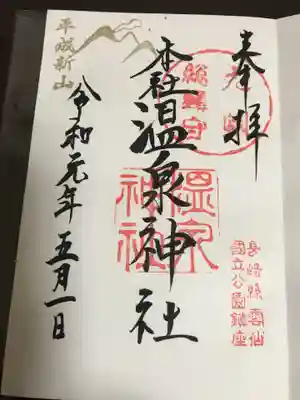 奉拝
本社温泉神社
令和元年五月一日
平成新山
温泉神社
長崎県雲仙
国立公園鎮座